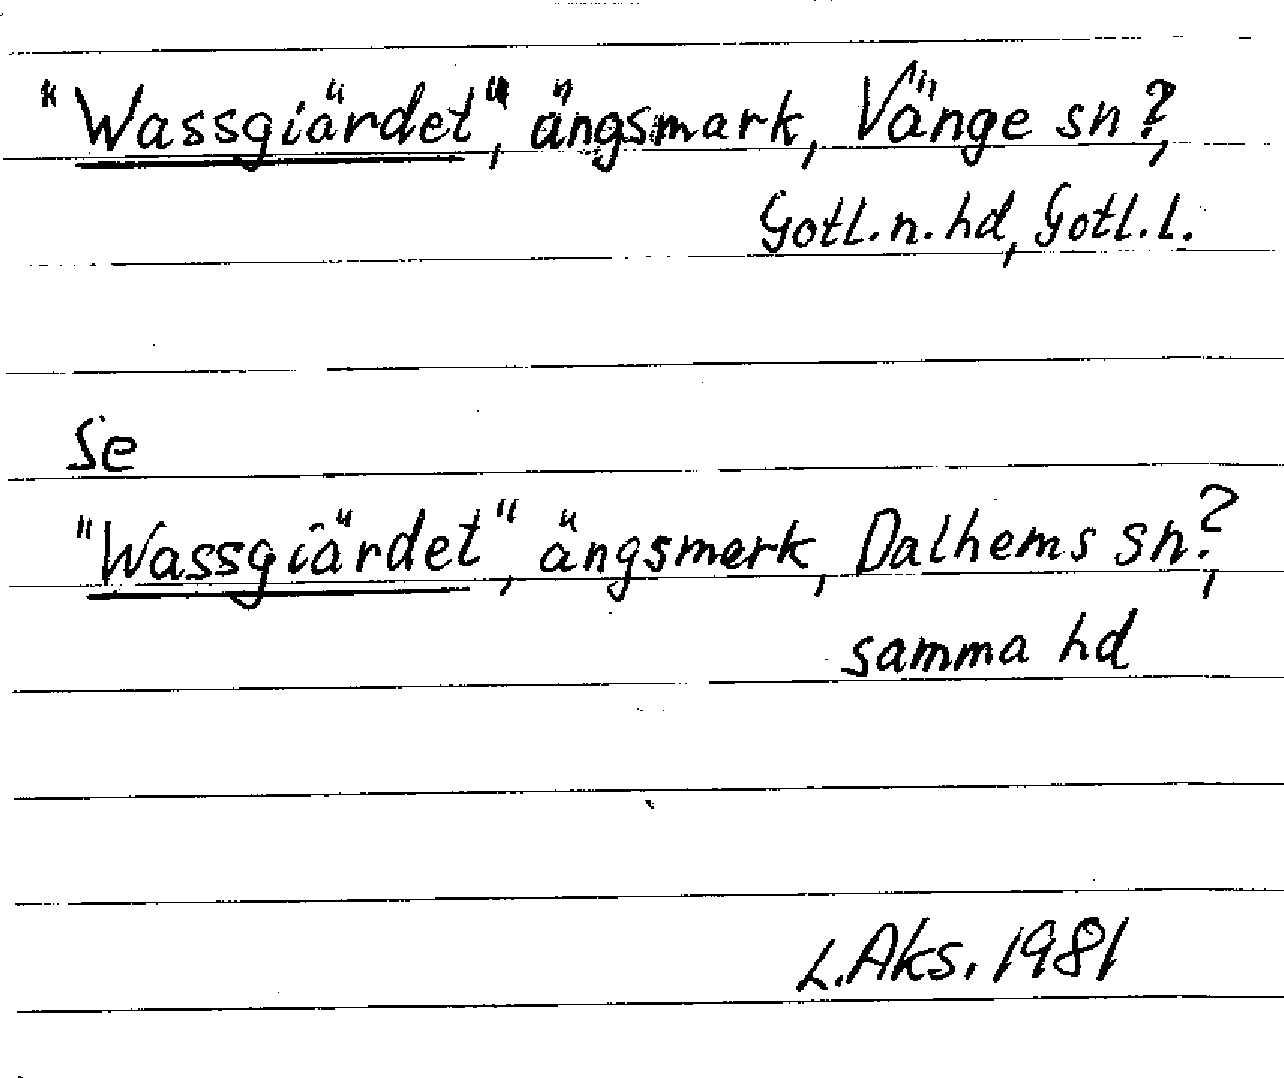 "Wassgiärdet", ängsmark, Vänge sn?,
Gotl. n. hd, Gotl. l.
Se
"Wassgiärdet", ängsmerk, Dalhems sn?,
samma hd
L. Aks. 1981